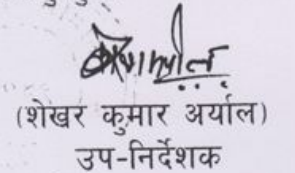 (शेखर कुमार अर्याल)
उप-निर्देशक